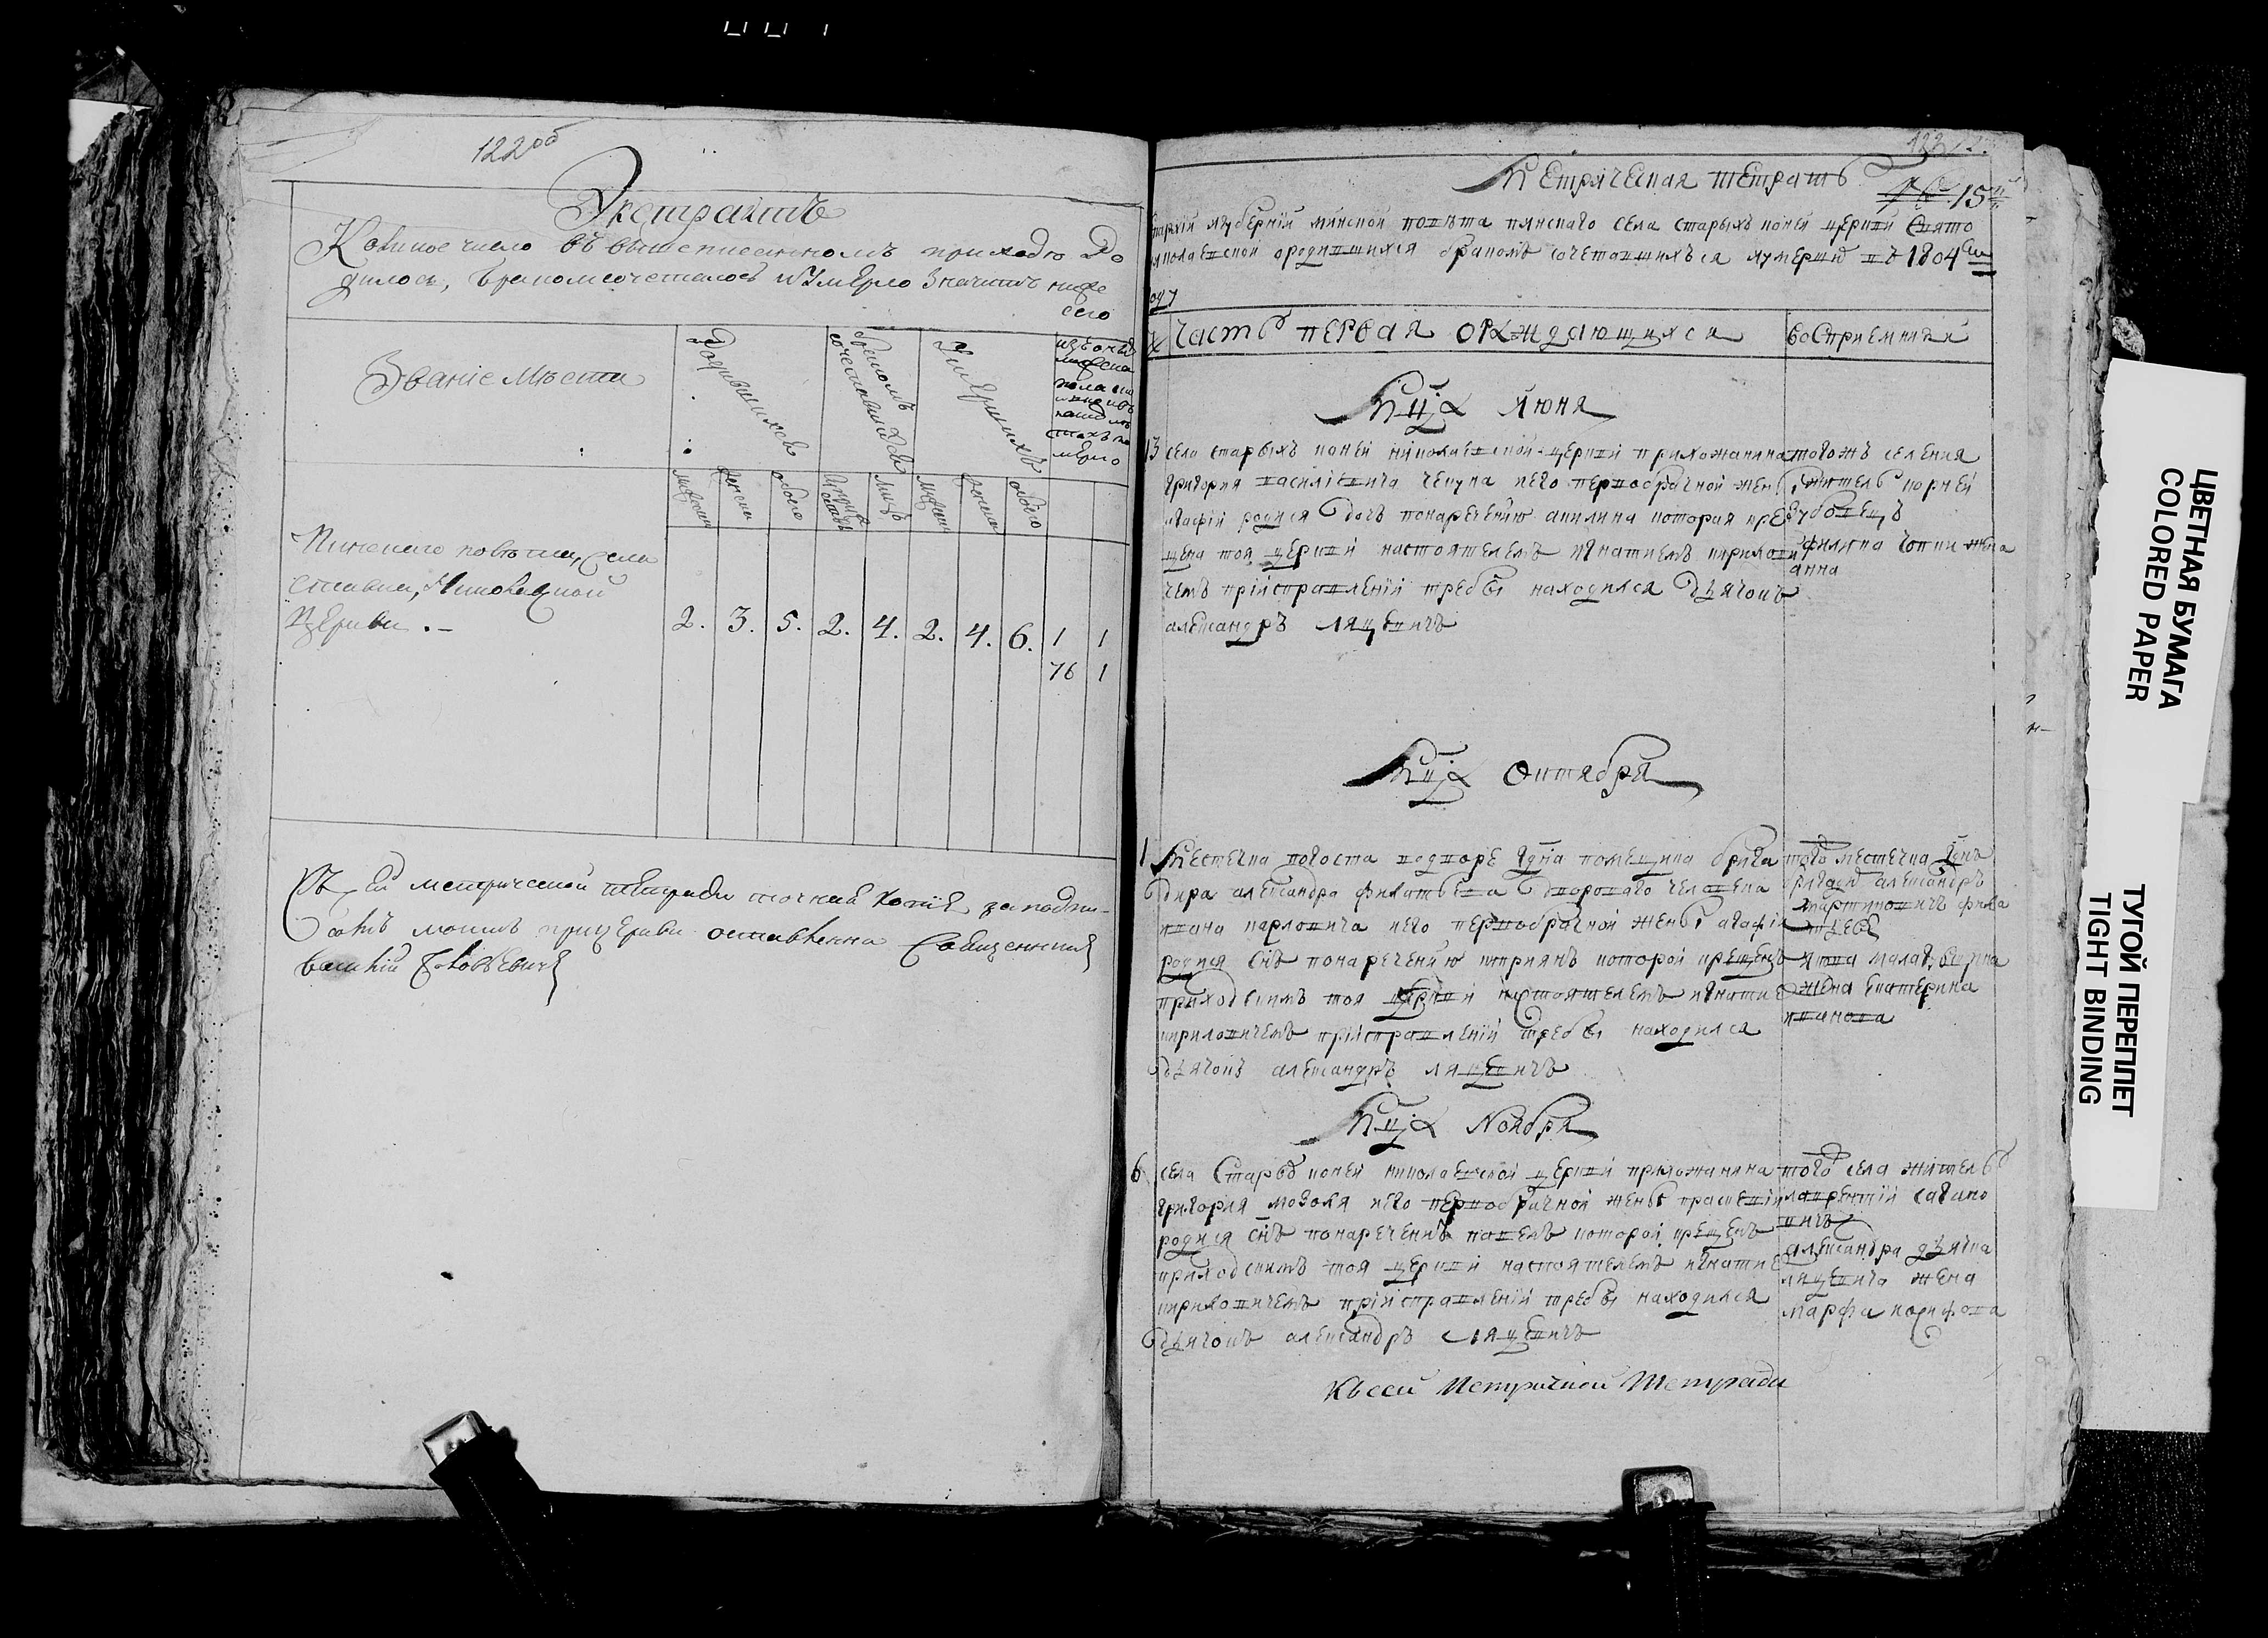 122об
Экстрактъ
Коликое число въ вышеписанномъ приходѣ Ро
дилось, бракомсочеталось иУмерло Значитъ ниже
сего
Званіе Мѣста
Родившихся
бракомъ сочетавшихся
Умершихъ
мужеска
женска
обоего
лицъ
мужеска
женска
обоего
Пинскаго повѣта, села
ставка, Николаевской
Церкви .-
2. 3. 5. 2. 4. 2. 4. 6. 1 1
76 1
Къ сей метрической тетради точная Копія заподпи-
сомъ моимъ прицеркви оставленна Священникъ
Метрическая тетрать
15
губерніи минской повѣта пинскаго села старыхъ коней церкви Свято
николаевской ородившихся бракомъ сочетавшихъся иумершы въ 1804мъ
оду
Часть первая ораждающихся
восприемники
Мцⷭ҇а Июня
13 села старыхъ коней николаевской церкви прихожанина
григория василієвича чекуна иего первобрачной жены
агафіи родися дочъ понаречению акилина которая кре
щена тоя церкви настоятелемъ игнатиемъ кирилови
чемъ прійсправленіи требы находился дьячокъ
александръ ляцевичъ
тогожъ селения
житель корней
зубовецъ
жена
анна
Мцⷭ҇а Октября
1 Местечка погоста вдворе Гдна помещика брига
дира александра филатьева дворового человека
ивана карловича иего первобрачной жены агафіи
родися снъ понаречению киприянъ которой крещенъ
приходскимъ тоя церкви настоятелемъ игнатие
кириловичемъ прійсправленіи требы находился
дьячокъ александръ ляцевичъ
того местечка Гднъ
бригади александръ
мартиновичъ фила
тьевъ
жена екатерина
иванова
Мцⷭ҇а Ноября
6 села Стары коней николаевской церкви прихожанина
григория мозоля иего первобрачной жены прасковіи
родися снъ понаречению павелъ которой крещенъ
приходскимъ тоя церкви настоятелемъ игнатие
кириловичемъ прійсправленіи требы находился
дьячокъ александръ ляцевичъ
того села житель
лаврентій сагано
вичъ
александра дьячка
ляцевича жена
марфа
Ксеи Метричной Тетради
ЦВЕТНАЯ БУМАГА
COLORED PAPER
ТУГОЙ ПЕРЕПЛЕТ
TIGHT BINDING